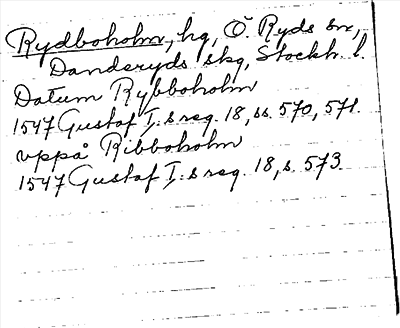 Rydboholm, hg, Ö. Ryds sn,
Danderyds skg, Stockh. l.
Datum Rybboholm
1547 Gustaf I:s reg. 18, ss. 570, 571.
vppå Ribboholm
1547 Gustaf I:s reg. 18, s. 573.